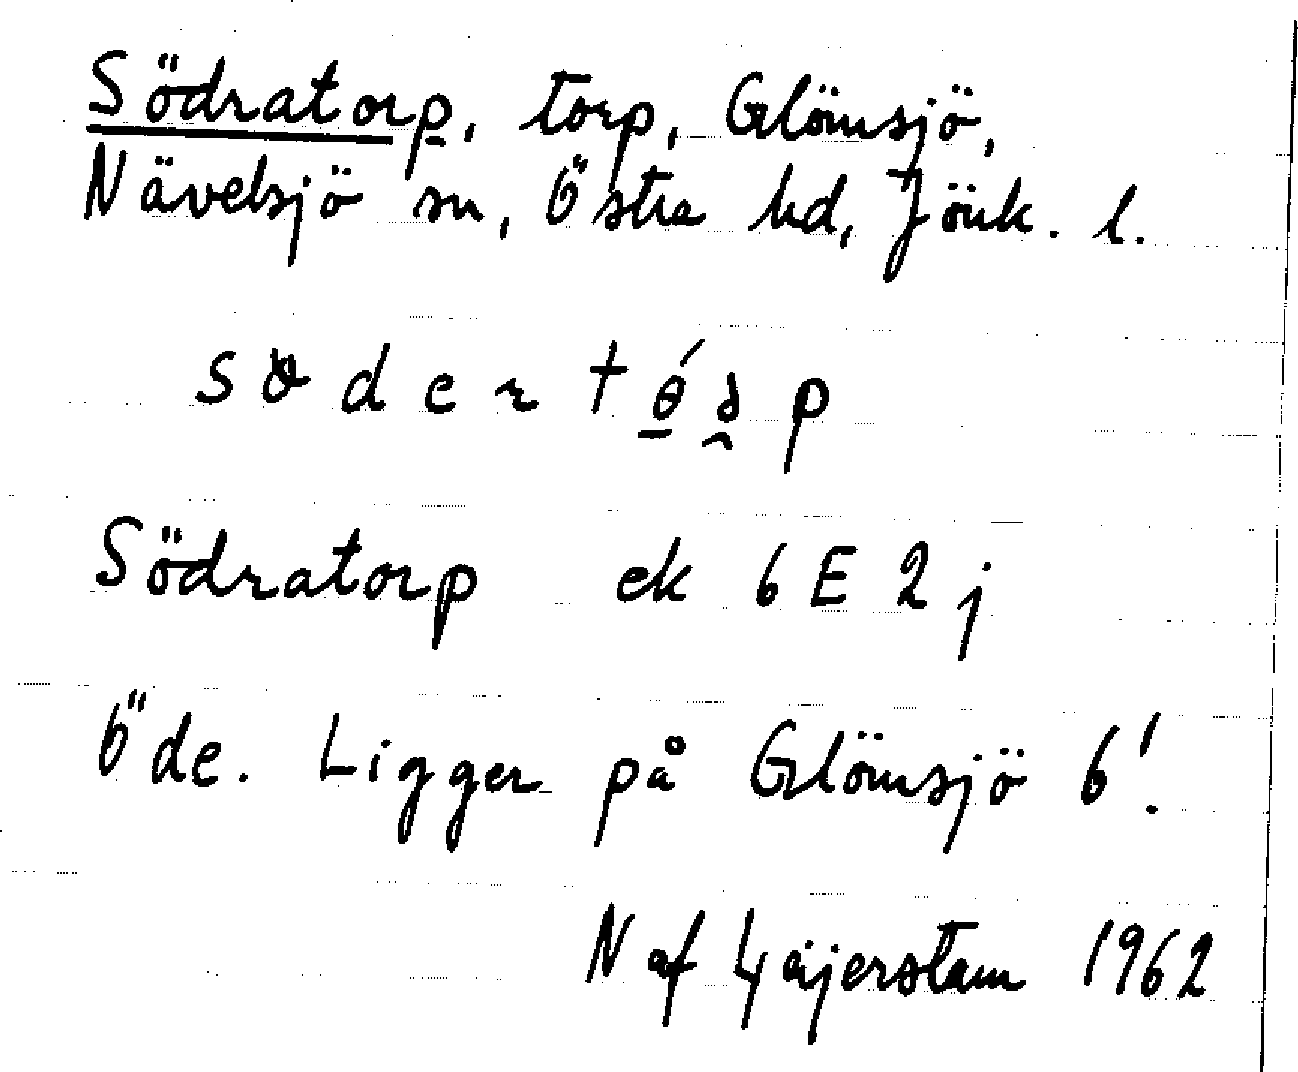 Södratorp, torp, Glömsjö,
Nävelsjö sn, Östra hd, Jönk. l.
Södratorp ek 6E2j
Öde. Ligger på Glömsjö 6¹.
N af Gäijerstam 1962